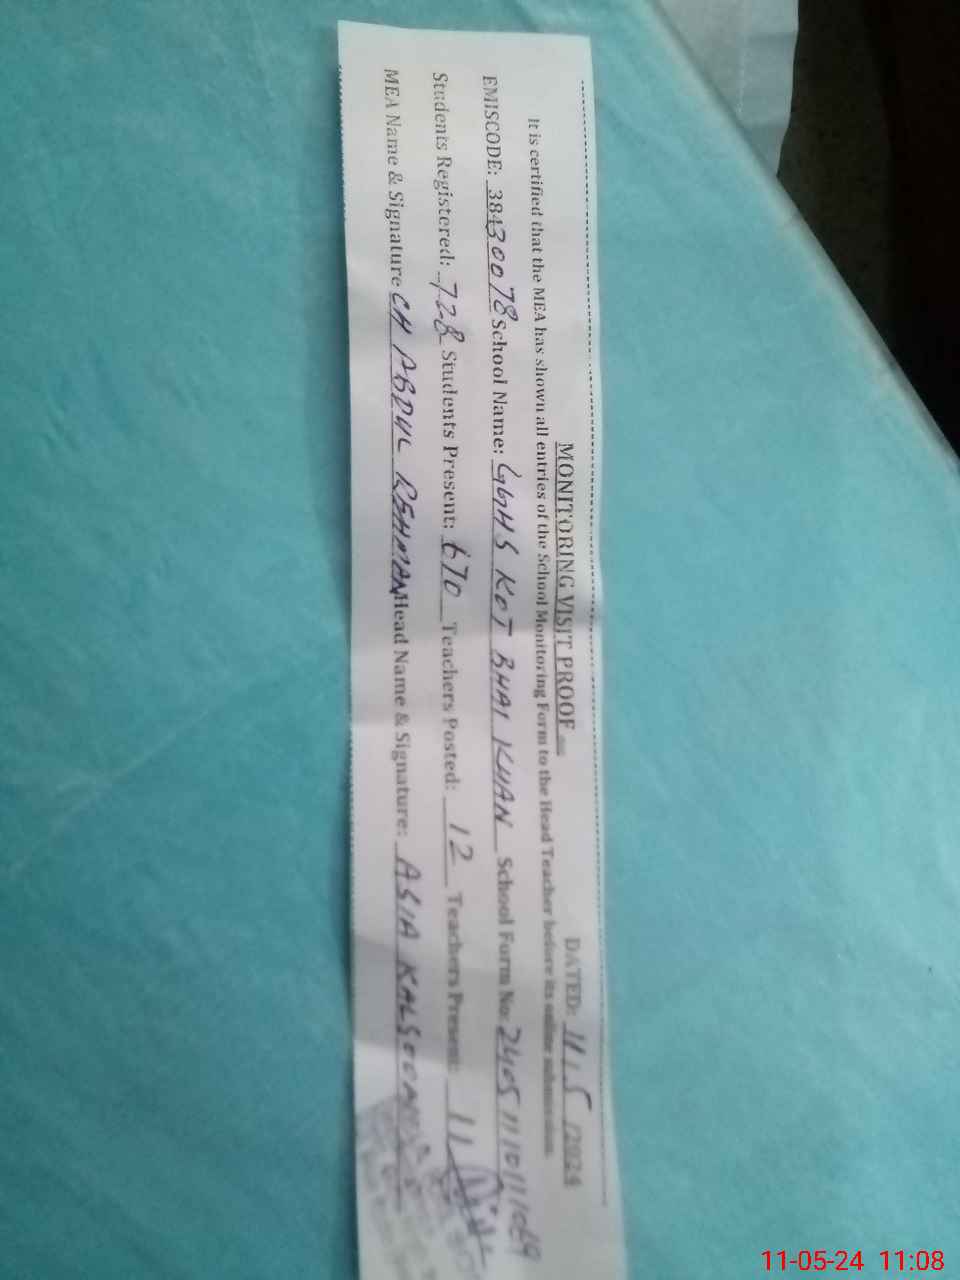 MONITORING VISIT PROOF
DATED: 11/5/2024
It is certified that the MEA has shown all entries of the School Monitoring Form to the Head Teacher before its online submission.
EMISCODE: 38430078 School Name: GGHS KOT BHAI KHAN School Form No: 
Students Registered: 728 Students Present: 670 Teachers Posted: 12 Teachers Present: 11
MEA Name & Signature CH ABDUL REHMAN Head Name & Signature: ASIA KALSOOM
11-05-24 11:08